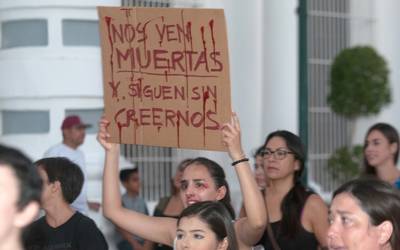 NOS VEN
MUERTAS
Y SIGUEN SIN
CREERNOS